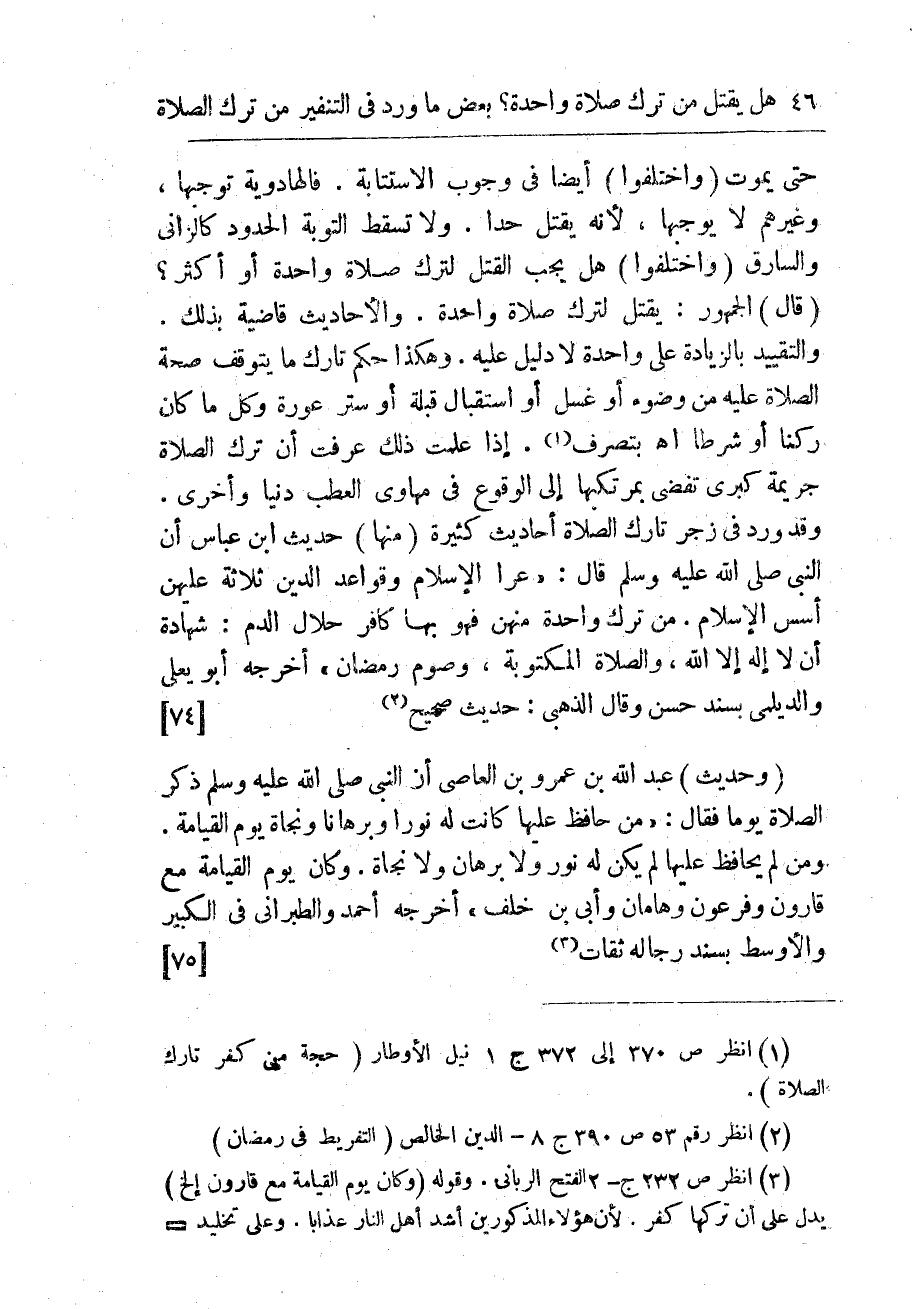 ٤٦ هل يقتل من ترك صلاة واحدة؟ بعض ما ورد فى التنفير من ترك الصلاة
حتى يموت (واختلفوا) أيضا فى وجوب الاستتابة . فالهادوية توجبها ،
وغيرهم لا يوجبها ، لأنه يقتل حدا . ولا تسقط التوبة الحدود كالزانى
والسارق (واختلفوا) هل يجب القتل لترك صلاة واحدة أو أكثر ؟
(قال) الجمهور : يقتل لترك صلاة واحدة . والأحاديث قاضية بذلك .
والتقييد بالزيادة على واحدة لا دليل عليه . وهكذا حكم تارك ما يتوقف صحة
الصلاة عليه من وضوء أو غسل أو استقبال قبلة أو ستر عورة وكل ما كان
ركنا أو شرطا اه بتصرف(١) . إذا علمت ذلك عرفت أن ترك الصلاة
جريمة كبرى تفضى بمرتكبها إلى الوقوع فى مهاوى العطب دنيا وأخرى .
وقد ورد فى زجر تارك الصلاة أحاديث كثيرة (منها) حديث ابن عباس أن
النبى صلى الله عليه وسلم قال : «عرا الإسلام وقواعد الدين ثلاثة عليهن
أسس الإسلام . من ترك واحدة منهن فهو بها كافر حلال الدم : شهادة
أن لا إله إلا الله ، والصلاة المكتوبة ، وصوم رمضان» أخرجه أبو يعلى
والديلمى بسند حسن وقال الذهبى : حديث صحيح(٢) [٧٤]
(وحديث) عبد الله بن عمرو بن العاصى أن النبى صلى الله عليه وسلم ذكر
الصلاة يوما فقال : «من حافظ عليها كانت له نورا وبرهانا ونجاة يوم القيامة .
ومن لم يحافظ عليها لم يكن له نور ولا برهان ولا نجاة . وكان يوم القيامة مع
قارون وفرعون وهامان وأبى بن خلف» أخرجه أحمد والطبرانى فى الكبير
والأوسط بسند رجاله ثقات(٣) [٧٥]
(١) انظر ص ٣٧٠ إلى ٣٧٢ ج ١ نيل الأوطار ( حجة من كفر تارك
الصلاة ) .
(٢) انظر رقم ٥٣ ص ٣٩٠ ج ٨ - الدين الخالص ( التفريط فى رمضان )
(٣) انظر ص ٢٣٢ ج - ٢ الفتح الربانى . وقوله (وكان يوم القيامة مع قارون إلخ)
يدل على أن تركها كفر . لأن هؤلاء المذكورين أشد أهل النار عذابا . وعلى تخليد =